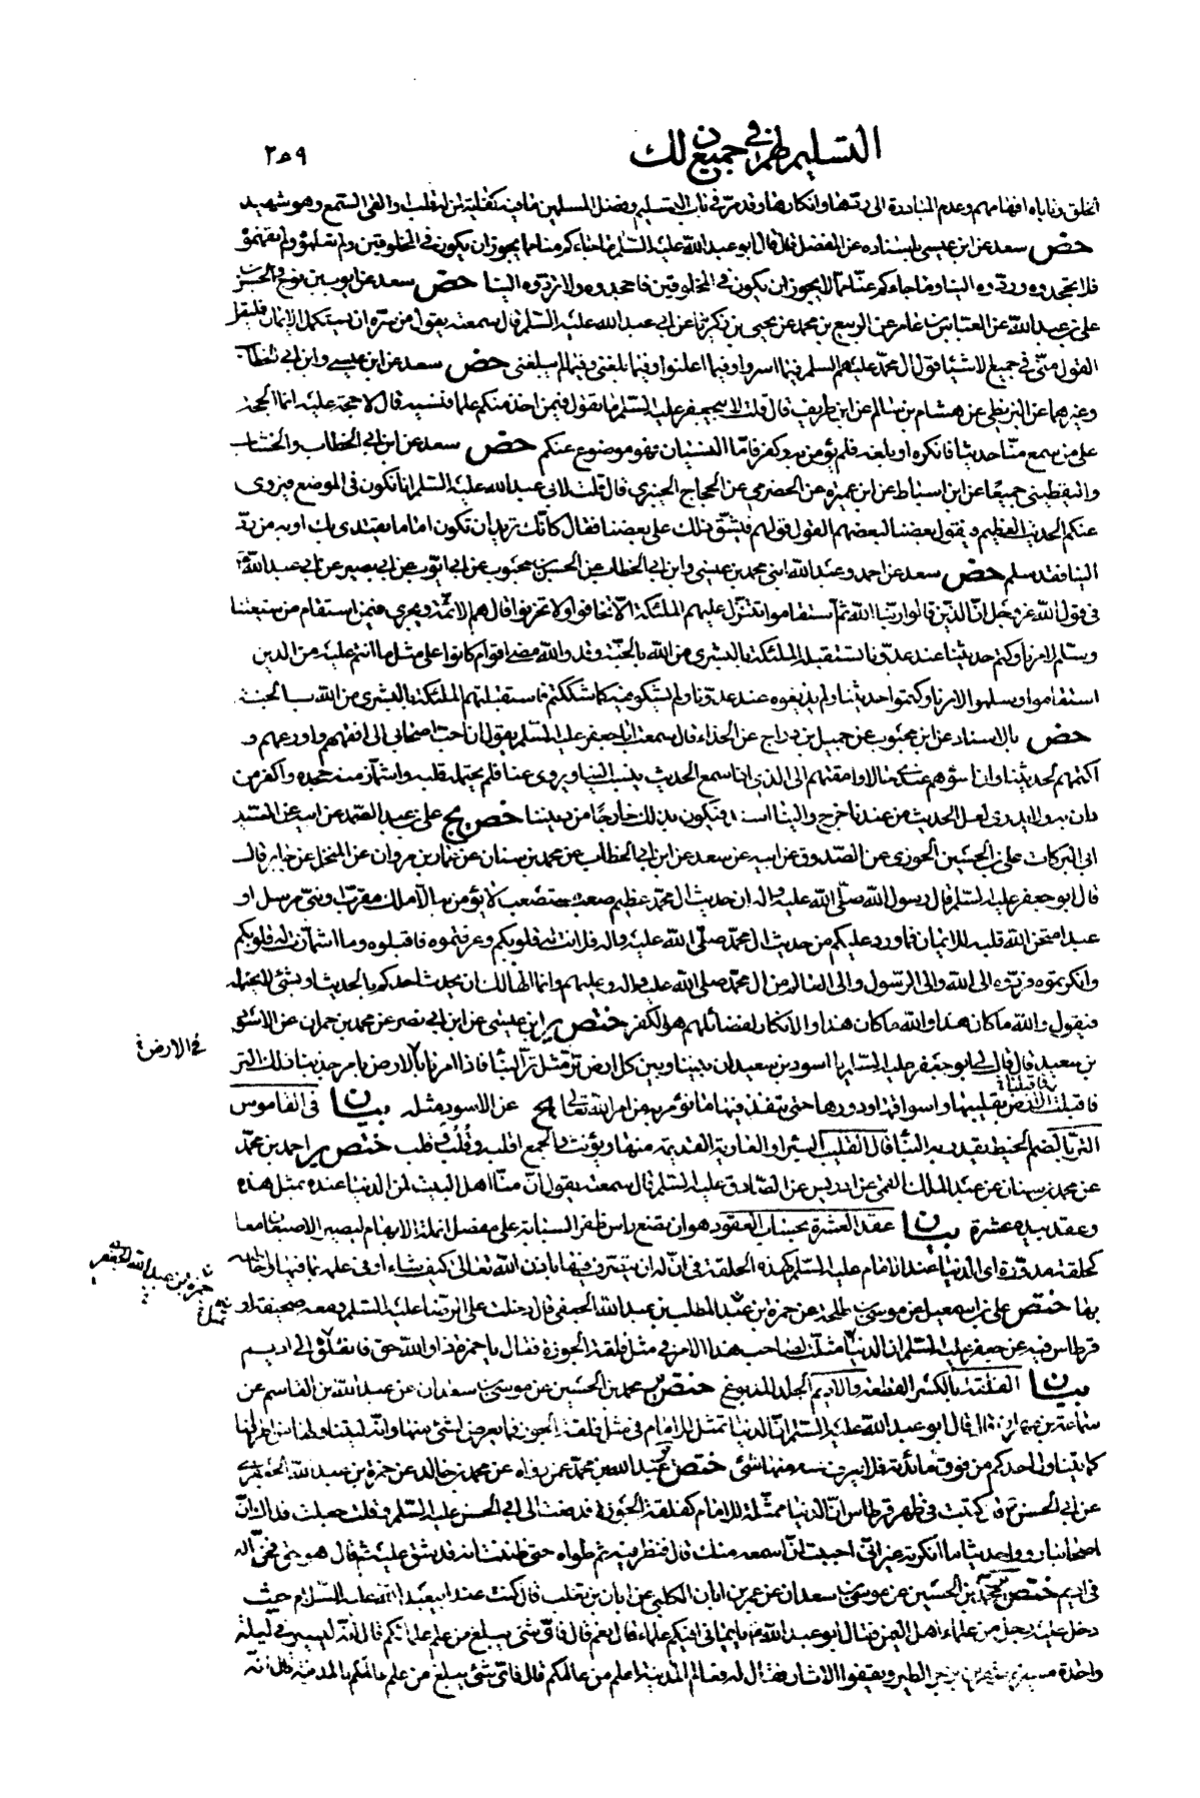 التسليم لهم في جميع ذلك
٢٥٩
الخلق وتأباه افهامهم وعدم المبادرة الى ردها وانكارها وقد مر في باب التسليم وفضل المسلمين ما فيه كفاية لمن له قلب او القى السمع وهو شهيد
خص سعد عن ابن عيسى باسناده عن المفضل قال قال ابو عبد الله عليه السلام ما جاءكم منا مما يجوز ان يكون في المخلوقين ولم تعلموه ولم تفهموه
فلا تجحدوه وردوه الينا وما جاءكم عنا مما لا يجوز ان يكون في المخلوقين فاجحدوه ولا تردوه الينا خص سعد عن ايوب بن نوح والحسن بن
علي بن عبد الله عن العباس بن عامر عن الربيع بن محمد عن يحيى بن زكريا عن ابي عبد الله عليه السلام قال سمعته يقول من سره ان يستكمل الايمان فليقل
القول مني في جميع الاشياء قول ال محمد عليهم السلام فيما اسروا وفيما اعلنوا وفيما بلغني وفيما لم يبلغني خص سعد عن ابن عيسى وابن ابي الخطاب
وغيرهما عن البزنطي عن هشام بن سالم عن ابن طريف قال قلت لابي جعفر عليه السلام ما تقول فيمن اخذ منكم علما فنسيه قال لا حجة عليه انما الحجة
على من سمع منا حديثا فانكره او بلغه فلم يؤمن به وكفر فاما النسيان فهو موضوع عنكم خص سعد عن ابن ابي الخطاب والخشاب
واليقطيني جميعا عن ابن اسباط عن ابن عميرة عن الحضرمي عن الحجاج الخيبري قال قلت لابي عبد الله عليه السلام انا نكون في الموضع فيروى
عنكم الحديث العظيم فيقول بعضنا لبعضهم القول قولهم فيشق ذلك على بعضنا فقال كانك تريد ان تكون اماما يقتدى بك او به من رد
الينا فقد سلم خص سعد عن احمد وعبد الله ابني محمد بن عيسى وابن ابي الخطاب عن الحسن بن محبوب عن ابي ايوب عن ابي بصير عن ابي عبد الله
في قول الله عز وجل ان الذين قالوا ربنا الله ثم استقاموا تتنزل عليهم الملئكة الا تخافوا ولا تحزنوا قال هم الائمة ويجري فيمن استقام من شيعتنا
وسلم لامرنا وكتم حديثنا عند عدونا تستقبله الملئكة بالبشرى من الله بالجنة وقد والله مضى اقوام كانوا على مثل ما انتم عليه من الدين
استقاموا وسلموا لامرنا وكتموا حديثنا ولم يذيعوه عند عدونا ولم يشكوا فيه كما شككتم فاستقبلتهم الملئكة بالبشرى من الله بالجنة
خص بالاسناد عن ابن محبوب عن جميل بن دراج عن الحذاء قال سمعت ابا جعفر عليه السلام يقول ان احب اصحابي الي افقههم واورعهم و
اكتمهم لحديثنا وان اسوءهم عندي حالا وامقتهم الي الذي اذا سمع الحديث ينسب الينا ويروى عنا فلم يحتمله قلبه واشمأز منه جحده واكفر من
دان به ولا يدري لعل الحديث من عندنا خرج والينا اسند فيكون بذلك خارجا من ديننا خص يج علي بن عبد الصمد عن ابيه عن السيد
ابي البركات علي بن الحسين الجوزي عن الصدوق عن ابيه عن سعد عن ابن ابي الخطاب عن محمد بن سنان عن عمار بن مروان عن المنخل عن جابر قال
قال ابو جعفر عليه السلام قال رسول الله صلى الله عليه واله ان حديث ال محمد عظيم صعب مستصعب لا يؤمن به الا ملك مقرب ونبي مرسل او
عبد امتحن الله قلبه للايمان فما ورد عليكم من حديث ال محمد صلى الله عليه واله فلانت له قلوبكم وعرفتموه فاقبلوه وما اشمأزت له قلوبكم
وانكرتموه فردوه الى الله والى الرسول والى العالم من ال محمد صلى الله عليه واله وعليهم وانما الهالك ان يحدث احدكم بالحديث او بشئ لا يحتمله
فيقول والله ما كان هذا والله ما كان هذا والانكار لفضائلهم هو الكفر ختص ير ابن عيسى عن ابن ابي نصر عن محمد بن حمران عن الاسود
بن سعيد قال قال لي ابو جعفر عليه السلام يا اسود بن سعيد ان بيننا وبين كل ارض ترا مثل تر البناء فاذا امرنا بالارض بامر جذبنا ذلك التر
في الارض
فاقبلت الارض بقليبها واسواقها ودورها حتى ينفذ فيها ما نؤمر به من امر الله تعالى يج عن الاسود مثله بيان في القاموس
التر بالضم الخيط يقدر به البناء قال القليب البئر او العادية القديمة منها ويؤنث والجمع اقلبة وقلب وقلب ختص ير احمد بن محمد
عن محمد بن سنان عن عبد الملك القمي عن ادريس عن الصادق عليه السلام قال سمعته يقول ان منا اهل البيت لمن الدنيا عنده بمثل هذه
وعقد بيده عشرة بيان عقد العشرة بحساب العقود هو ان تضع راس ظفر السبابة على مفصل انملة الابهام ليصير الاصبعان معا
كحلقة مدورة اي الدنيا عند الامام عليه السلام كهذه الحلقة في ان له ان يتصرف فيها باذن الله تعالى كيف شاء او في علمه بما فيها واحاطته
بها ختص علي بن اسمعيل عن موسى بن طلحة عن حمزة بن عبد المطلب بن عبد الله الجعفي قال دخلت على الرضا عليه السلام ومعه صحيفة او
حمزة بن عبد الله الجعفري
قرطاس فيه عن جعفر عليه السلام ان الدنيا مثلت لصاحب هذا الامر في مثل فلقة الجوزة فقال يا حمزة ذا والله حق فانقلوه الى اديم
بيان الفلقة بالكسر القطعة والاديم الجلد المدبوغ ختص ير محمد بن الحسين عن موسى بن سعدان عن عبد الله بن القاسم عن
سماعة بن مهران قال قال ابو عبد الله عليه السلام ان الدنيا تمثل للامام في مثل فلقة الجوز فما يعرض لشئ منها وانه ليتناولها من اطرافها
كما يتناول احدكم من فوق مائدته فلا يعزب عنه منها شئ ختص عبد الله بن محمد عمن رواه عن محمد بن خالد عن حمزة بن عبد الله الجعفري
عن ابي الحسن قال كتبت في ظهر قرطاس ان الدنيا ممثلة للامام كفلقة الجوزة فدفعته الى ابي الحسن عليه السلام وقلت جعلت فداك ان
اصحابنا رووا حديثا ما انكرته غير اني احببت ان اسمعه منك قال فنظر فيه ثم طواه حتى ظننت انه قد شق عليه ثم قال هو حق فحوله
في اديم ختص محمد بن الحسين عن موسى بن سعدان عن عمر بن ابان الكلبي عن ابان بن تغلب قال كنت عند ابي عبد الله عليه السلام حيث
دخل عليه رجل من علماء اهل اليمن فقال ابو عبد الله يا يماني افيكم علماء قال نعم قال فاي شئ يبلغ من علم علمائكم قال انه ليسير في ليلة
واحدة مسيرة شهرين يزجر الطير ويقفوا الاثار فقال له فعالم المدينة اعلم من عالمكم قال فاي شئ يبلغ من علم عالمكم بالمدينة قال انه